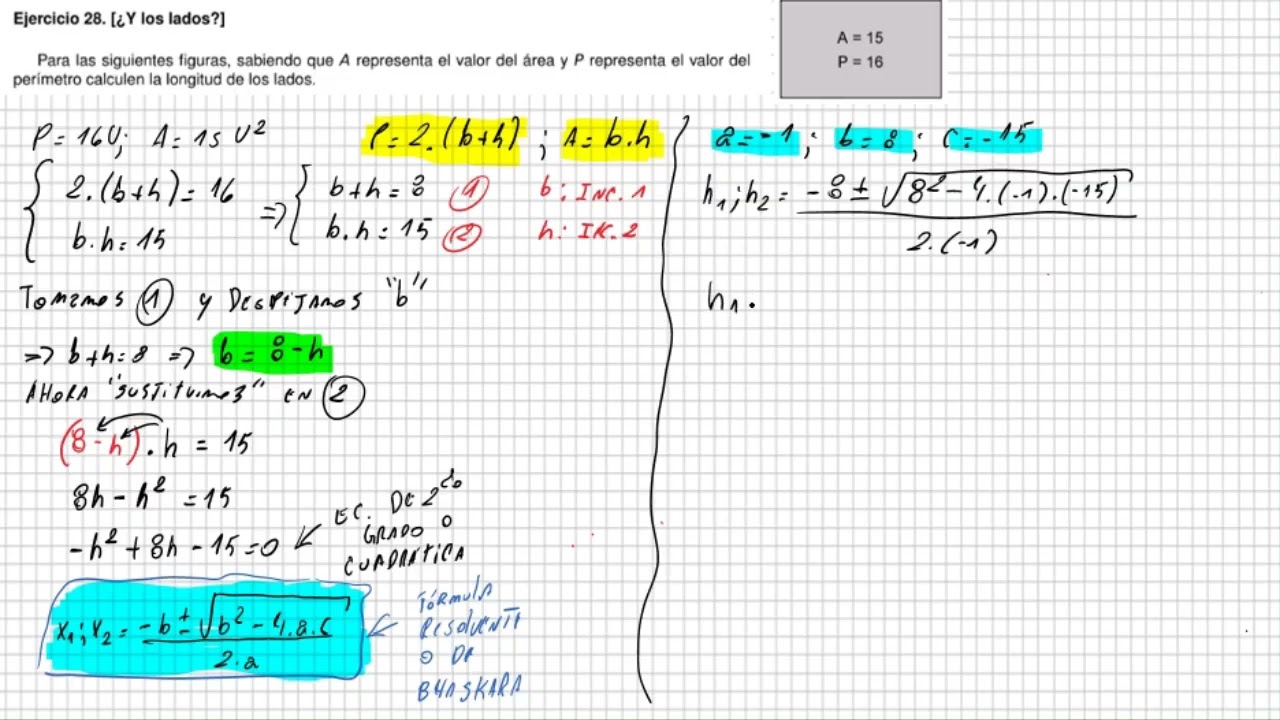 Ejercicio 28. [¿Y los lados?]
Para las siguientes figuras, sabiendo que A representa el valor del área y P representa el valor del
perímetro calculen la longitud de los lados.
A = 15
P = 16
P = 16U; A = 15 U²
P = 2.(b+h) ; A = b.h
2.(b+h) = 16
b.h = 15
=> b+h = 8 ①
b.h = 15 ②
b: INC. 1
h: IK. 2
TOMAMOS ① y DESPEJAMOS "b"
=> b+h = 8 => b = 8-h
AHORA "SUSTITUIMOS" EN ②
(8-h).h = 15
8h - h² = 15
-h² + 8h - 15 = 0
EC. DE 2do
GRADO O
CUADRÁTICA
x₁; x₂ = -b ± √b² - 4.a.c
2.a
FÓRMULA
RESOLVENTE
O DE
BHASKARA
a = -1; b = 8; c = -15
h₁; h₂ = -8 ± √8² - 4.(-1).(-15)
2.(-1)
h₁.